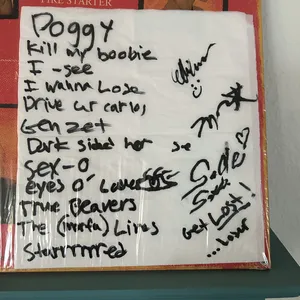 FIRE STARTER
Poggy
Kill my boobie
I -see
I wanna Lose
Drive ur carlos,
Gen zet
Dark sided her se
sex-o
eyes o' Loser
True Beavers
The (mrfa) Lives
Starrrrrred
Sadie
Get Lost!
...Loser